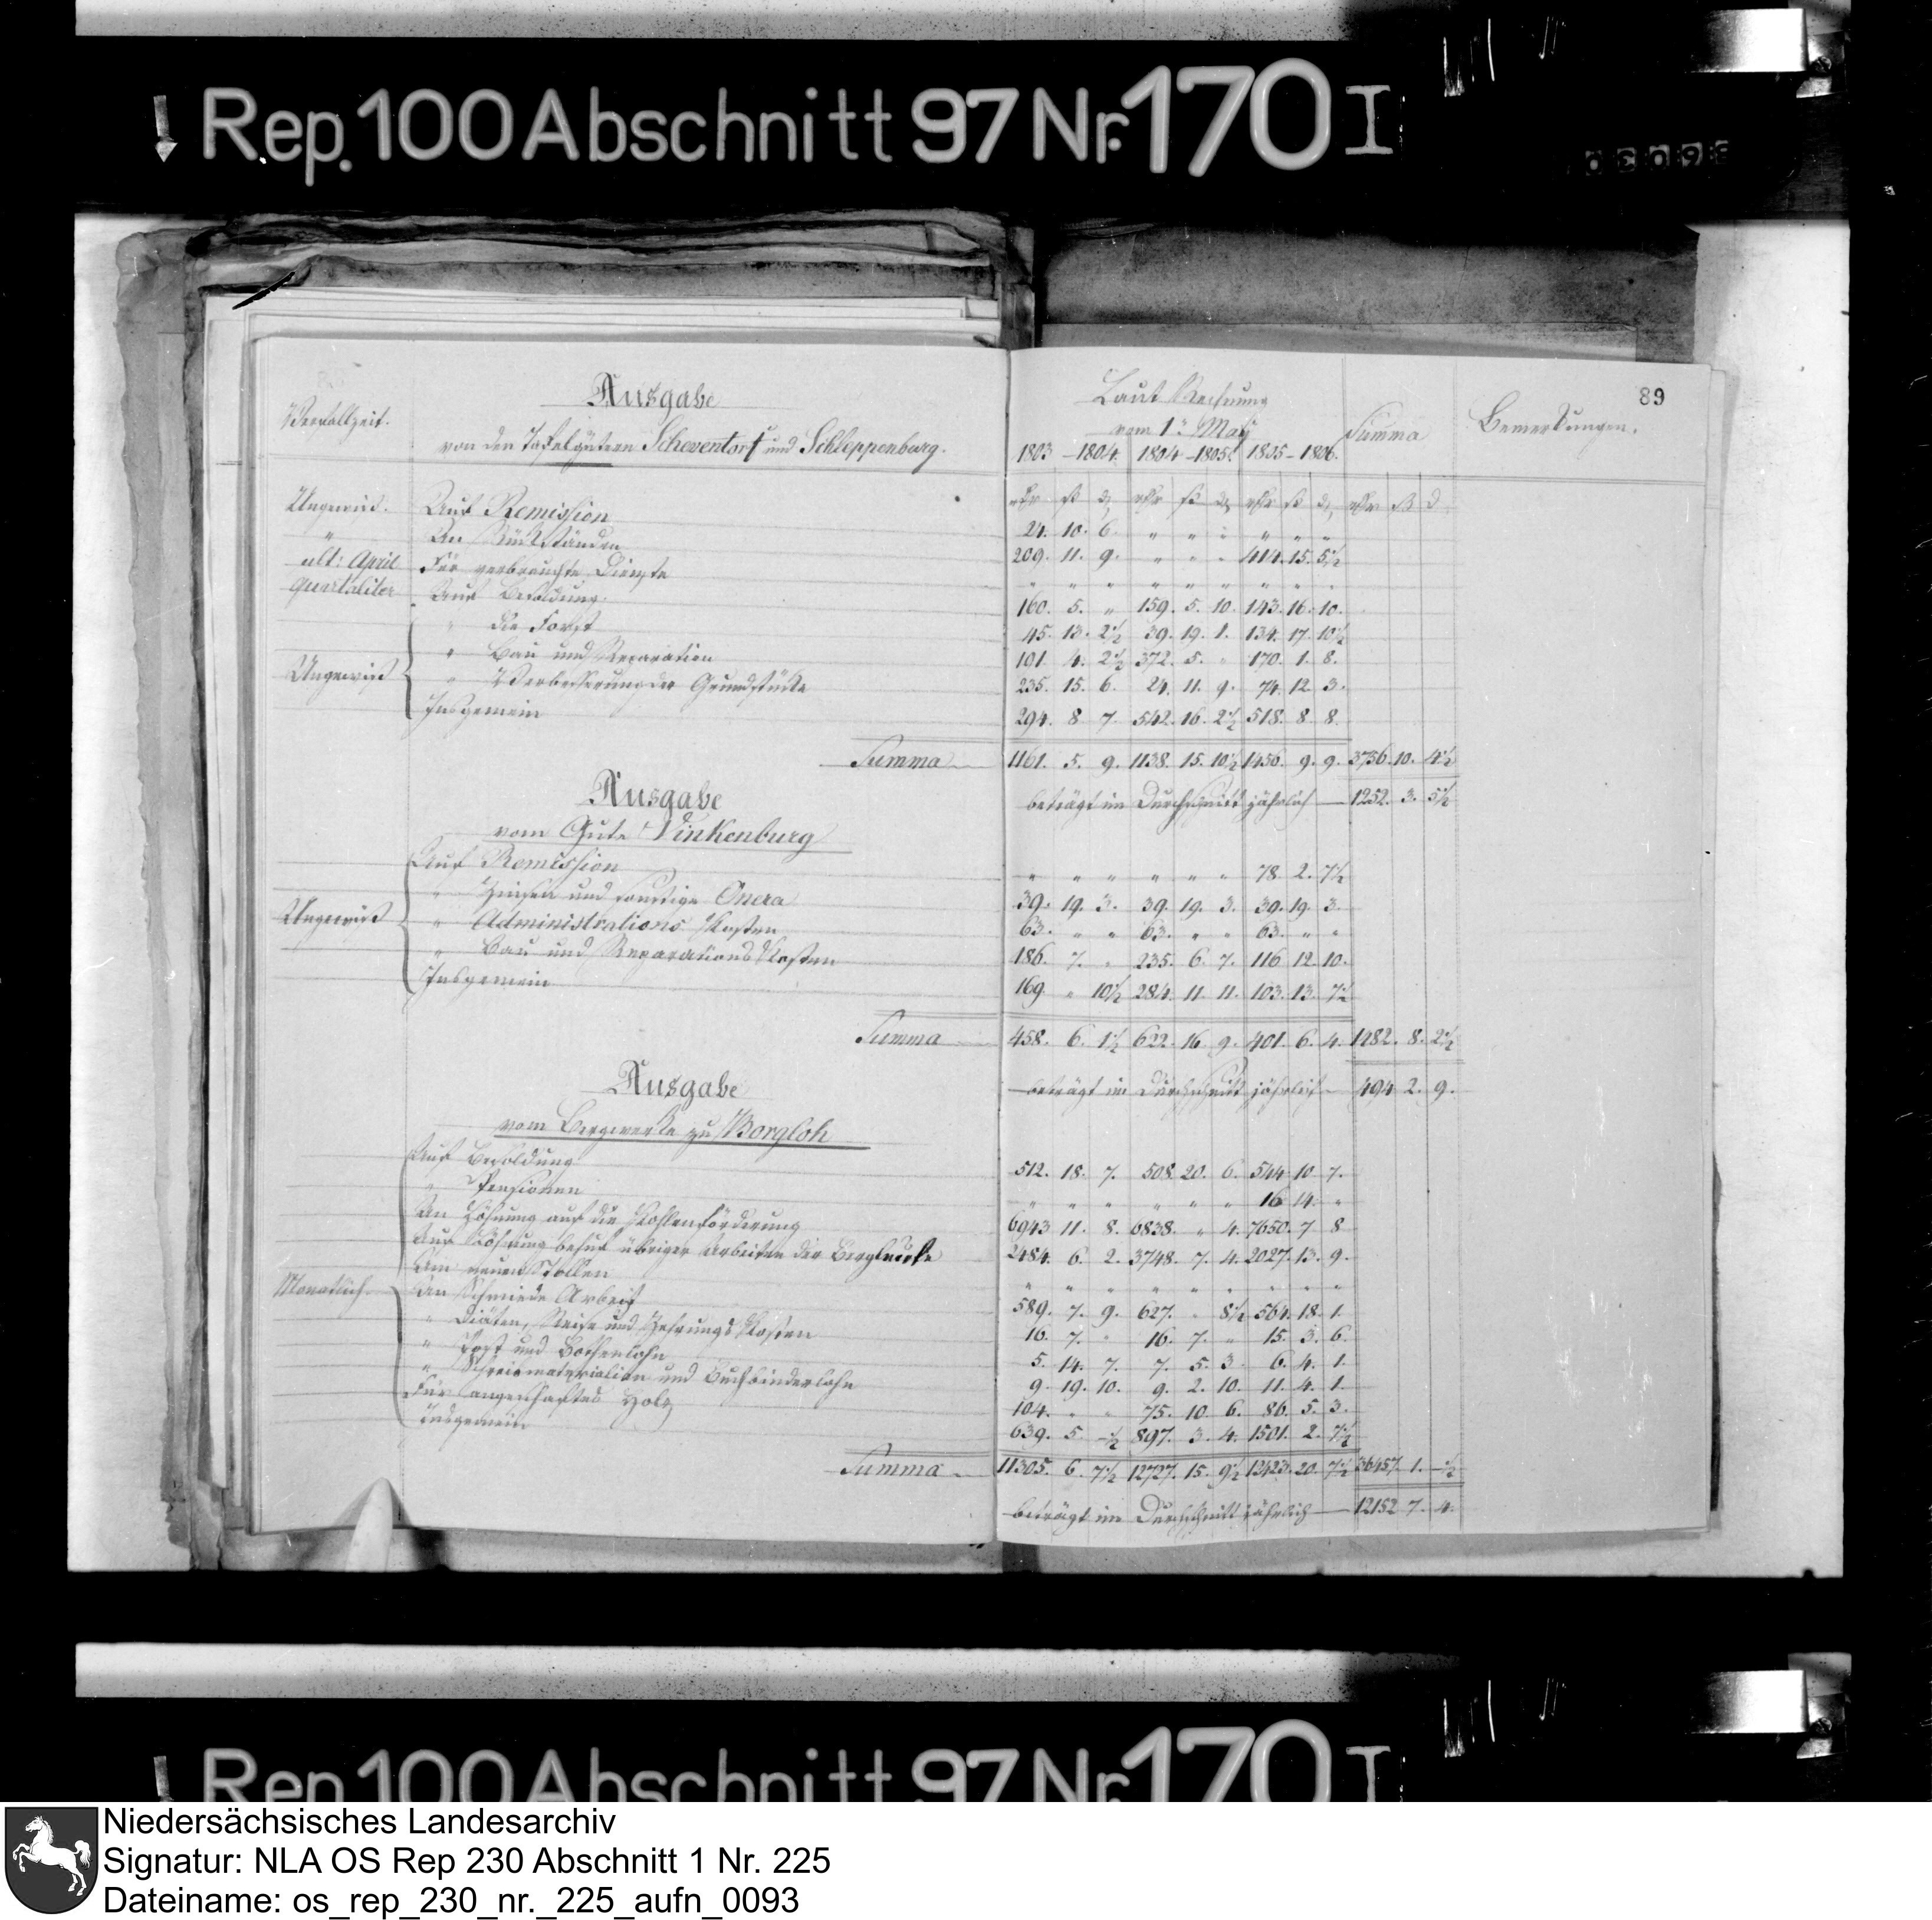 Rep. 100 Abschnitt 97 Nr. 170 I
89
Verfallzeit.
Ausgabe
von den Tafelgütern Scheventorf und Schleppenburg.
Laut Rechnung
vom 1ⁿ May
1803 – 1804. 1804 – 1805. 1805 – 1806.
Summa
Bemerkungen.
Ungewiß. Auf Remission 24. 10. 6. " " " " " "
" An Rückständen 209. 11. 9. " " " 414. 15. 5½
ult: April Für verbrauchte Dienste " " " " " " " " "
quartaliter Auf Besoldung 160. 5. " 159. 5. 10. 143. 16. 10.
" die Forst 45. 13. 2½ 39. 19. 1. 134. 17. 10½
" Bau und Reparation 101. 4. 2½ 372. 5. " 170. 1. 8.
Ungewiß " Verbesserung der Grundstücke 235. 15. 6. 24. 11. 9. 74. 12. 3.
Insgemein 294. 8. 7. 542. 16. 2½ 518. 8. 8.
Summa 1161. 5. 9. 1138. 15. 10½ 1456. 9. 9. 3756. 10. 4½
beträgt im Durchschnitt jährlich — 1252. 3. 5½
Ausgabe
vom Gute Vinkenburg
Auf Remission " " " " " " 78. 2. 7½
" Zinsen und sonstige Onera 39. 19. 3. 39. 19. 3. 39. 19. 3.
Ungewiß " Administrations Kosten 63. " " 63. " " 63. " "
" Bau und Reparations Kosten 186. 7. " 235. 6. 7. 116. 12. 10.
Insgemein 169. " 10½ 284. 11. 11. 103. 13. 7½
Summa 458. 6. 1½ 622. 16. 9. 401. 6. 4. 1482. 8. 2½
beträgt im Durchschnitt jährlich – 494. 2. 9.
Ausgabe
vom Bergwerke zu Borgloh
Auf Besoldung 512. 18. 7. 508. 20. 6. 544. 10. 7.
" Pensionen " " " " " " 16. 14. "
An Löhnung auf die Kohlenförderung 6943. 11. 8. 6838. " 4. 7650. 7. 8
Auf Löhnung behuf übriger Arbeiten der Bergleute 2484. 6. 2. 3748. 7. 4. 2027. 13. 9.
Am neuen Stollen " " " " " " " " "
Monatlich An Schmiede Arbeit 589. 7. 9. 627. " 8½ 564. 18. 1.
" Diäten, Reise und Zehrungs Kosten 16. 7. " 16. 7. " 15. 3. 6.
" Post und Bothenlohn 5. 14. 7. 7. 5. 3. 6. 4. 1.
" Schreibmaterialien und Buchbinderlohn 9. 19. 10. 9. 2. 10. 11. 4. 1.
Für angeschaftes Holz 104. " " 75. 10. 6. 86. 5. 3.
Insgemein 639. 5. –½ 897. 3. 4. 1501. 2. 7½
Summa 11305. 6. 7½ 12727. 15. 9½ 12423. 20. 7½ 36457. 1. –½
beträgt im Durchschnitt jährlich — 12152. 7. 4.
Rep. 100 Abschnitt 97 Nr. 170 I
Niedersächsisches Landesarchiv
Signatur: NLA OS Rep 230 Abschnitt 1 Nr. 225
Dateiname: os_rep_230_nr._225_aufn_0093